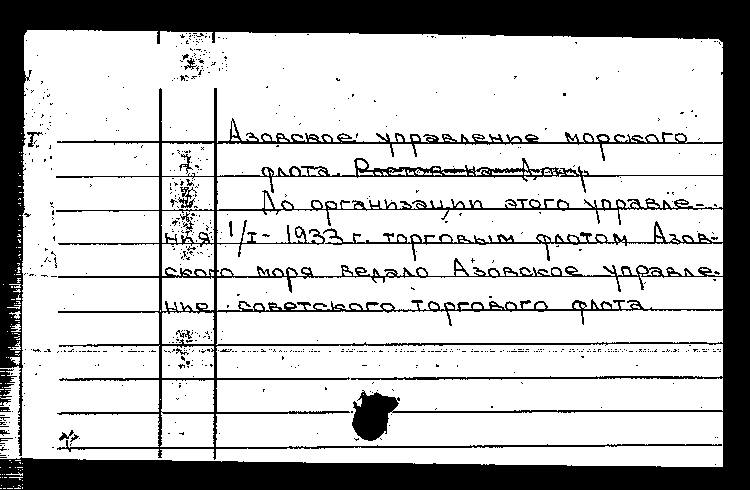 Азовское управление морского
флота. Ростов-на-Дону.
До организации этого управле-
ния 1/I- 1933 г. торговым флотом Азов-
ского моря ведало Азовское управле-
ние советского торгового флота.